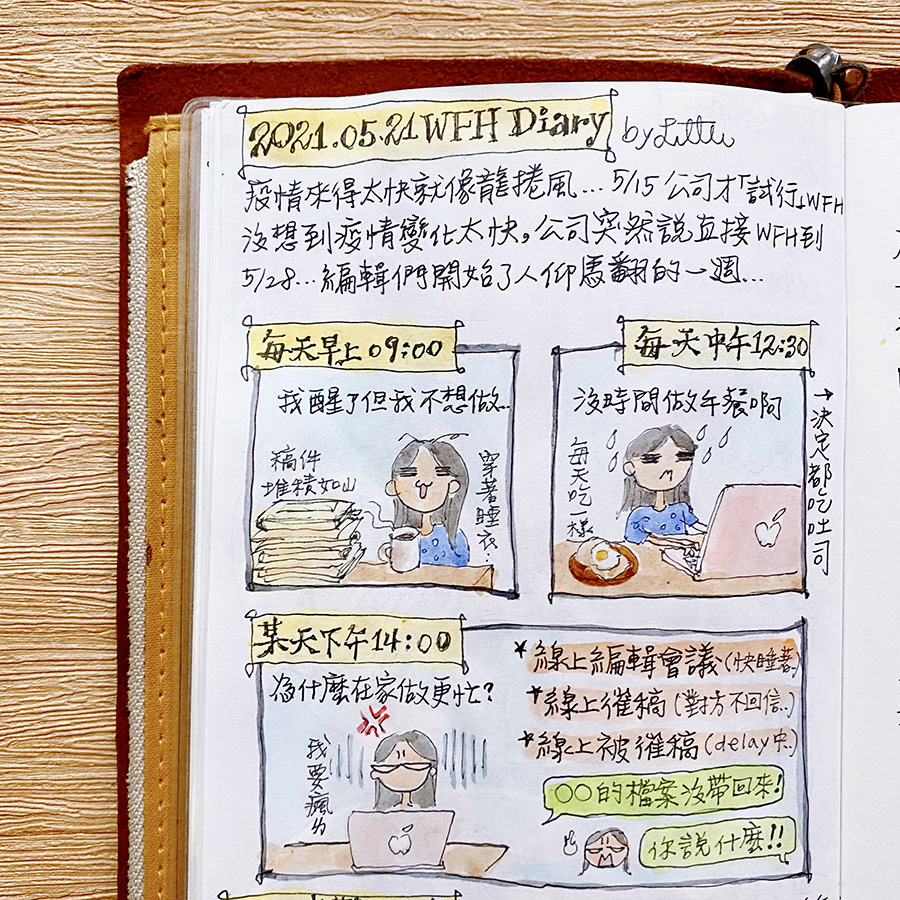 2021.05.21 WFH Diary by Littu
疫情來得太快就像龍捲風...5/15公司才「試行」WFH
沒想到疫情變化太快，公司突然說直接WFH到
5/28...編輯們開始了人仰馬翻的一週...
每天早上09:00
我醒了但我不想做..
稿件
堆積如山
穿著睡衣..
每天中午12:30
沒時間做午餐啊
每天吃一樣
→決定都吃吐司
某天下午14:00
為什麼在家做更忙？
我要瘋了
★線上編輯會議(快睡著..)
★線上催稿(對方不回信..)
★線上被催稿(delay中..)
○○的檔案沒帶回來!
你說什麼!!